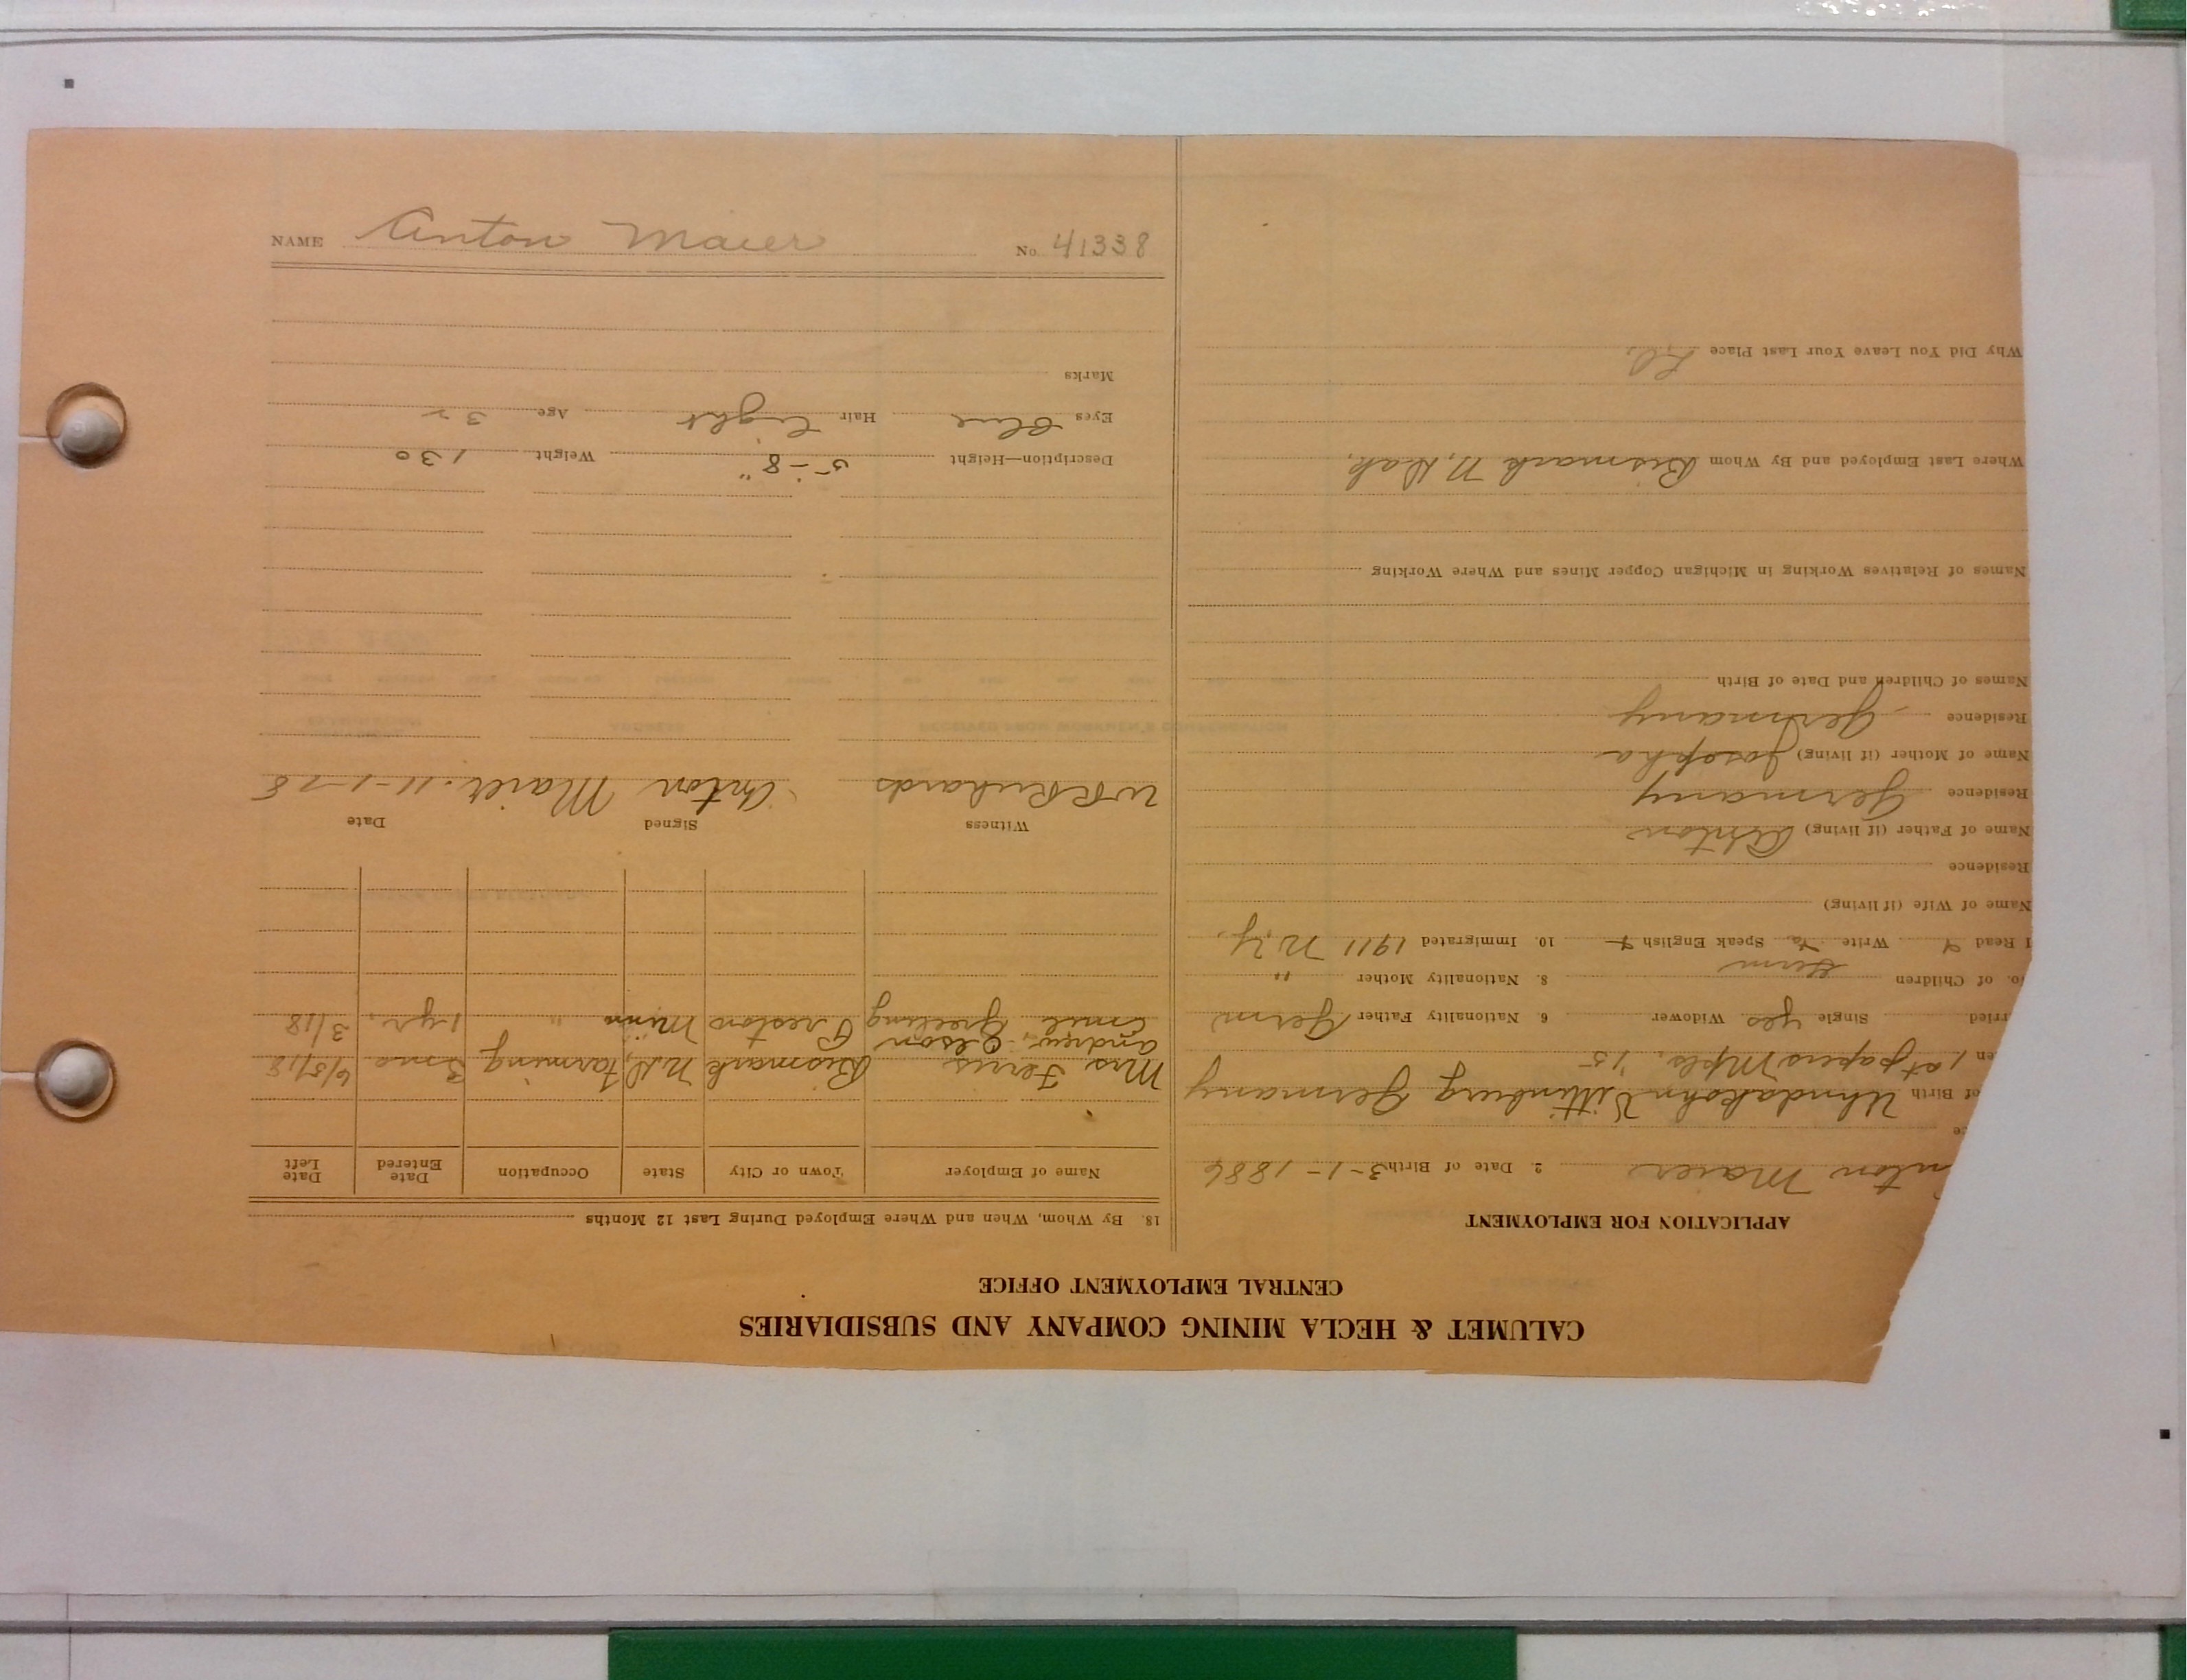 CALUMET & HECLA MINING COMPANY AND SUBSIDIARIES
CENTRAL EMPLOYMENT OFFICE
APPLICATION FOR EMPLOYMENT
nton Maier 2. Date of Birth 3-1-1886
ce
of Birth Germany
en 1st papers Mpls. '15
rried Single yes Widower 6. Nationality Father Germ
o. of Children 8. Nationality Mother "
Germ
1 Read Write Speak English 10. Immigrated 1911 N.Y.
Name of Wife (if living)
Residence
Name of Father (if living) Anton
Residence Germany
Name of Mother (if living) Josepha
Residence Germany
Names of Children and Date of Birth
Names of Relatives Working in Michigan Copper Mines and Where Working
Where Last Employed and By Whom Bismark N. Dak.
Why Did You Leave Your Last Place
18. By Whom, When and Where Employed During Last 12 Months
Name of Employer Town or City State Occupation Date Entered Date Left
Mrs Ferris Bismark N.D. farming 3 mo 6/5/18
Andrew Olson
Emil Greeling Preston Minn " 1 yr. 3/18
Witness Signed Date
WR Richards Anton Maier 11-1-18
Description—Height 5'-8" Weight 130
Eyes Blue Hair Light Age 32
Marks
NAME Anton Maier No. 41338